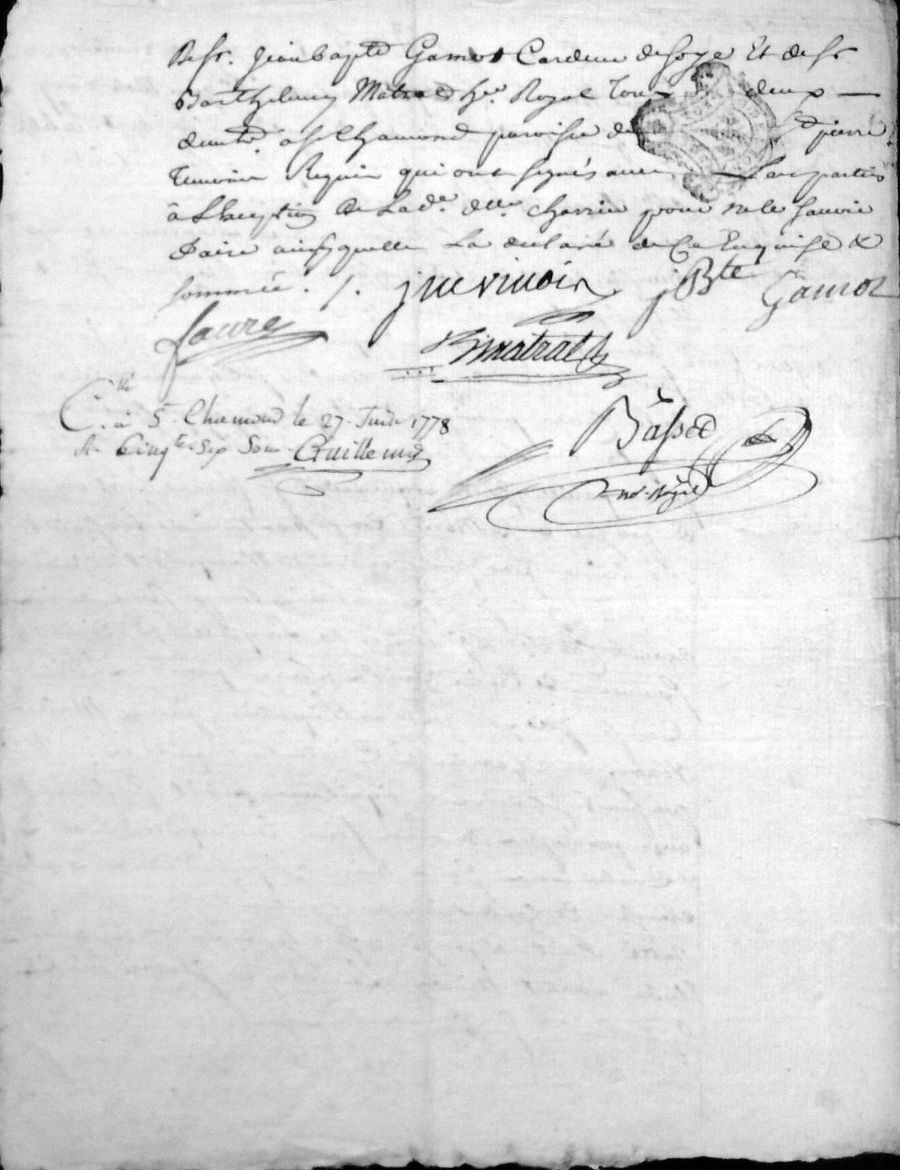 De Sr. Jean bapte Gamot Cardeur de soye Et de Sr
Barthelemy Matrat hr. Royal Tous deux
demt. à St Chamond paroisse de St pierre
Temoins Requis qui ont signés avec Les parties
à L'Exception de Lade. dlle. charrin pour ne le sçavoir
faire ainsy quelle La declaré de Ce Enquise &
sommée ./.
jBte Gamot
faure
matrat
Clé. à St. Chamond le 27. Juin 1778
Rt. Cinqte. Six Sous
Basset
nore. Royal